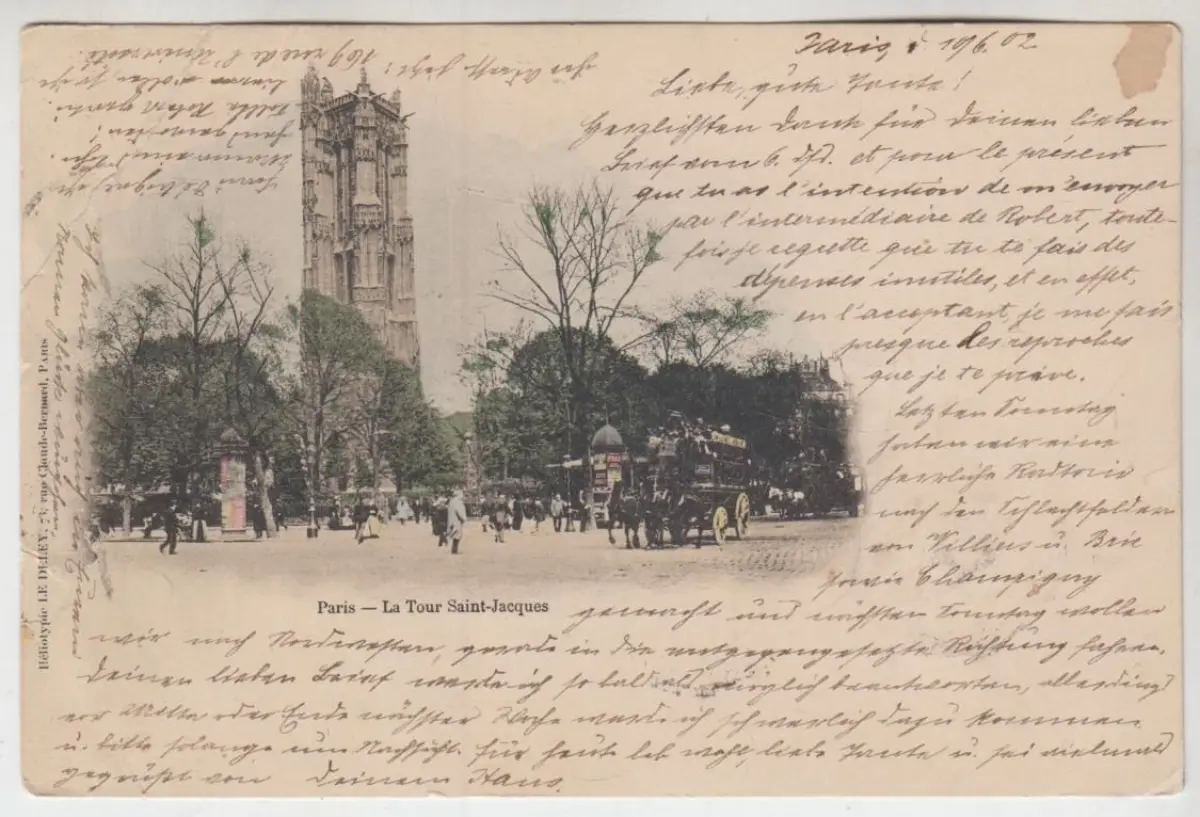 Paris, 19/6.02
Liebe, gute Tante!
Herzlichsten Dank für Deinen lieben
Brief vom 6. dß. et pour le présent
que tu as l'intention de m'envoyer
par l'intermédiaire de Robert, toute-
fois je regrette que tu te fais des
dépenses inutiles, et en effet,
en l'acceptant, je me fais
presque des reproches
que je te prive.
Letzten Sonntag
haben wir eine
herrliche Radtorie
nach den Schlachtfeldern
von Villiers u. Brie
sowie Champigny
gemacht und nächsten Sonntag wollen
wir nach Nordwesten, gerade in die entgegengesetzte Richtung fahren.
Deinen lieben Brief werde ich so bald als möglich beantworten, allerdings
vor Mitte oder Ende nächster Woche werde ich schwerlich dazu kommen
u. bitte solange um Nachsicht. Für heute leb wohl, liebe Tante u. sei vielmals
gegrüßt von Deinem Hans.
Paris — La Tour Saint-Jacques
Héliotypie LE DELEY, 73, rue Claude-Bernard, PARIS
169 rue de l'Université.